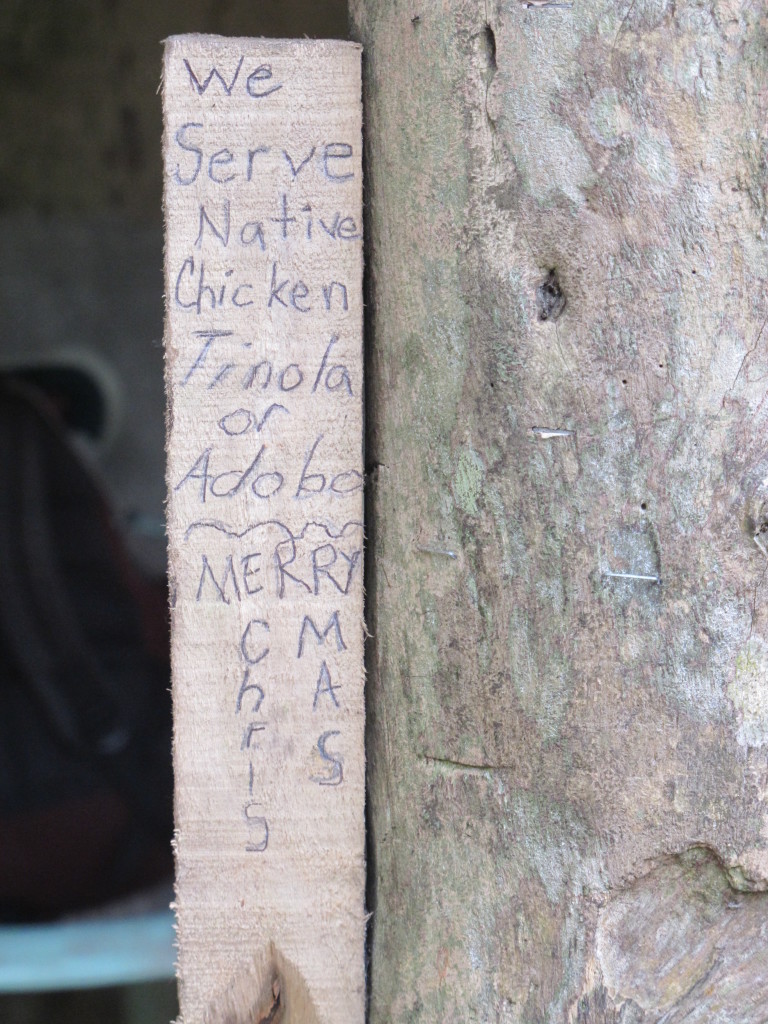 We
Serve
Native
Chicken
Tinola
or
Adobo
MERRY
Chris
MAS